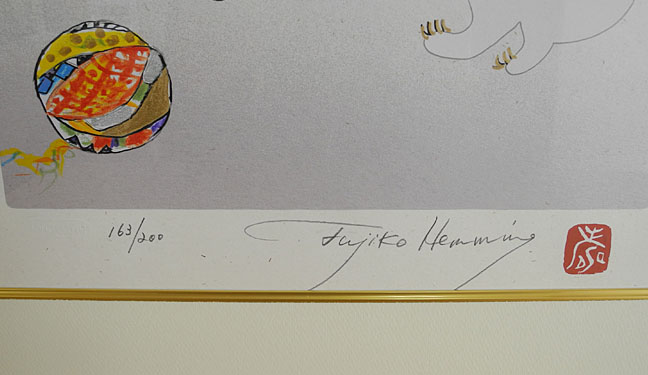 163/200
Fujiko Hemming